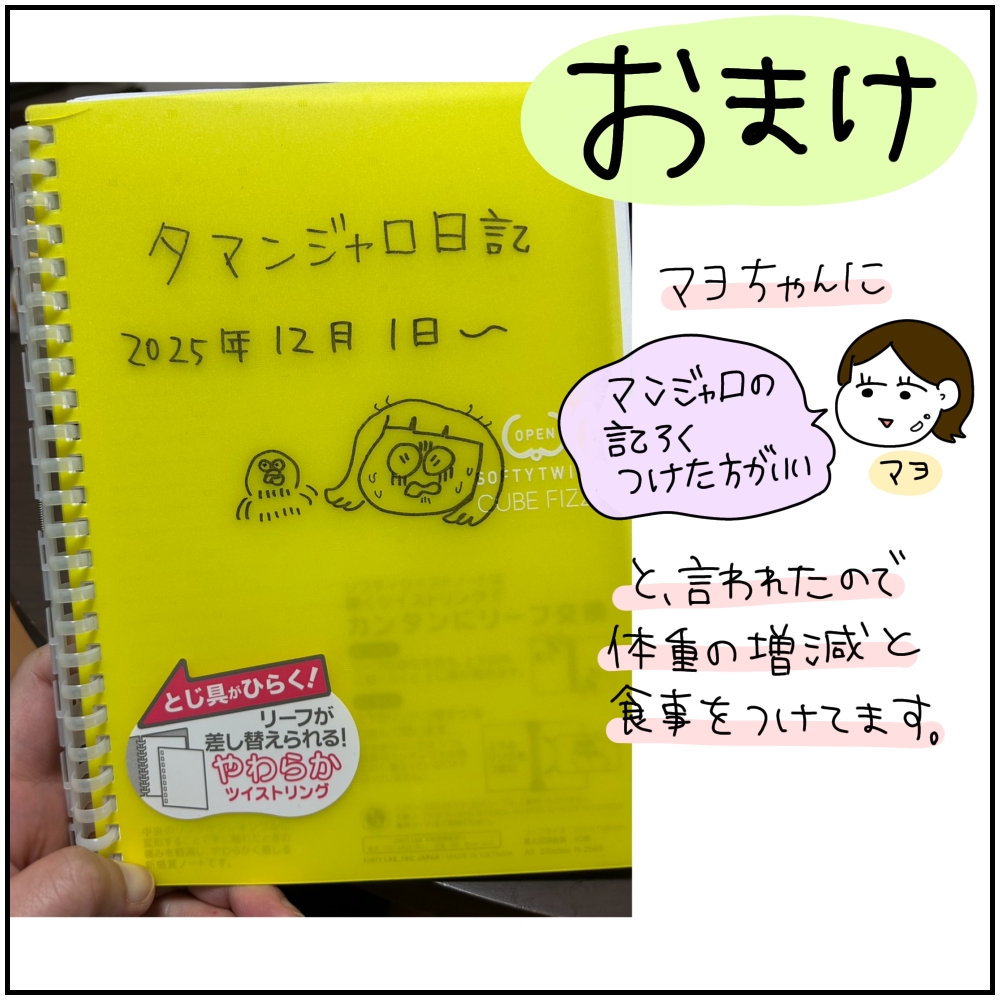 おまけ
タマンジャロ日記
2025年12月1日〜
OPEN
SOFTYTWI
CUBE FIZZ
カンタンにリーフ交換
とじ具がひらく!
リーフが
差し替えられる!
やわらか
ツイストリング
マヨちゃんに
マンジャロの
記ろく
つけた方がいい
マヨ
と、言われたので
体重の増減と
食事をつけてます。